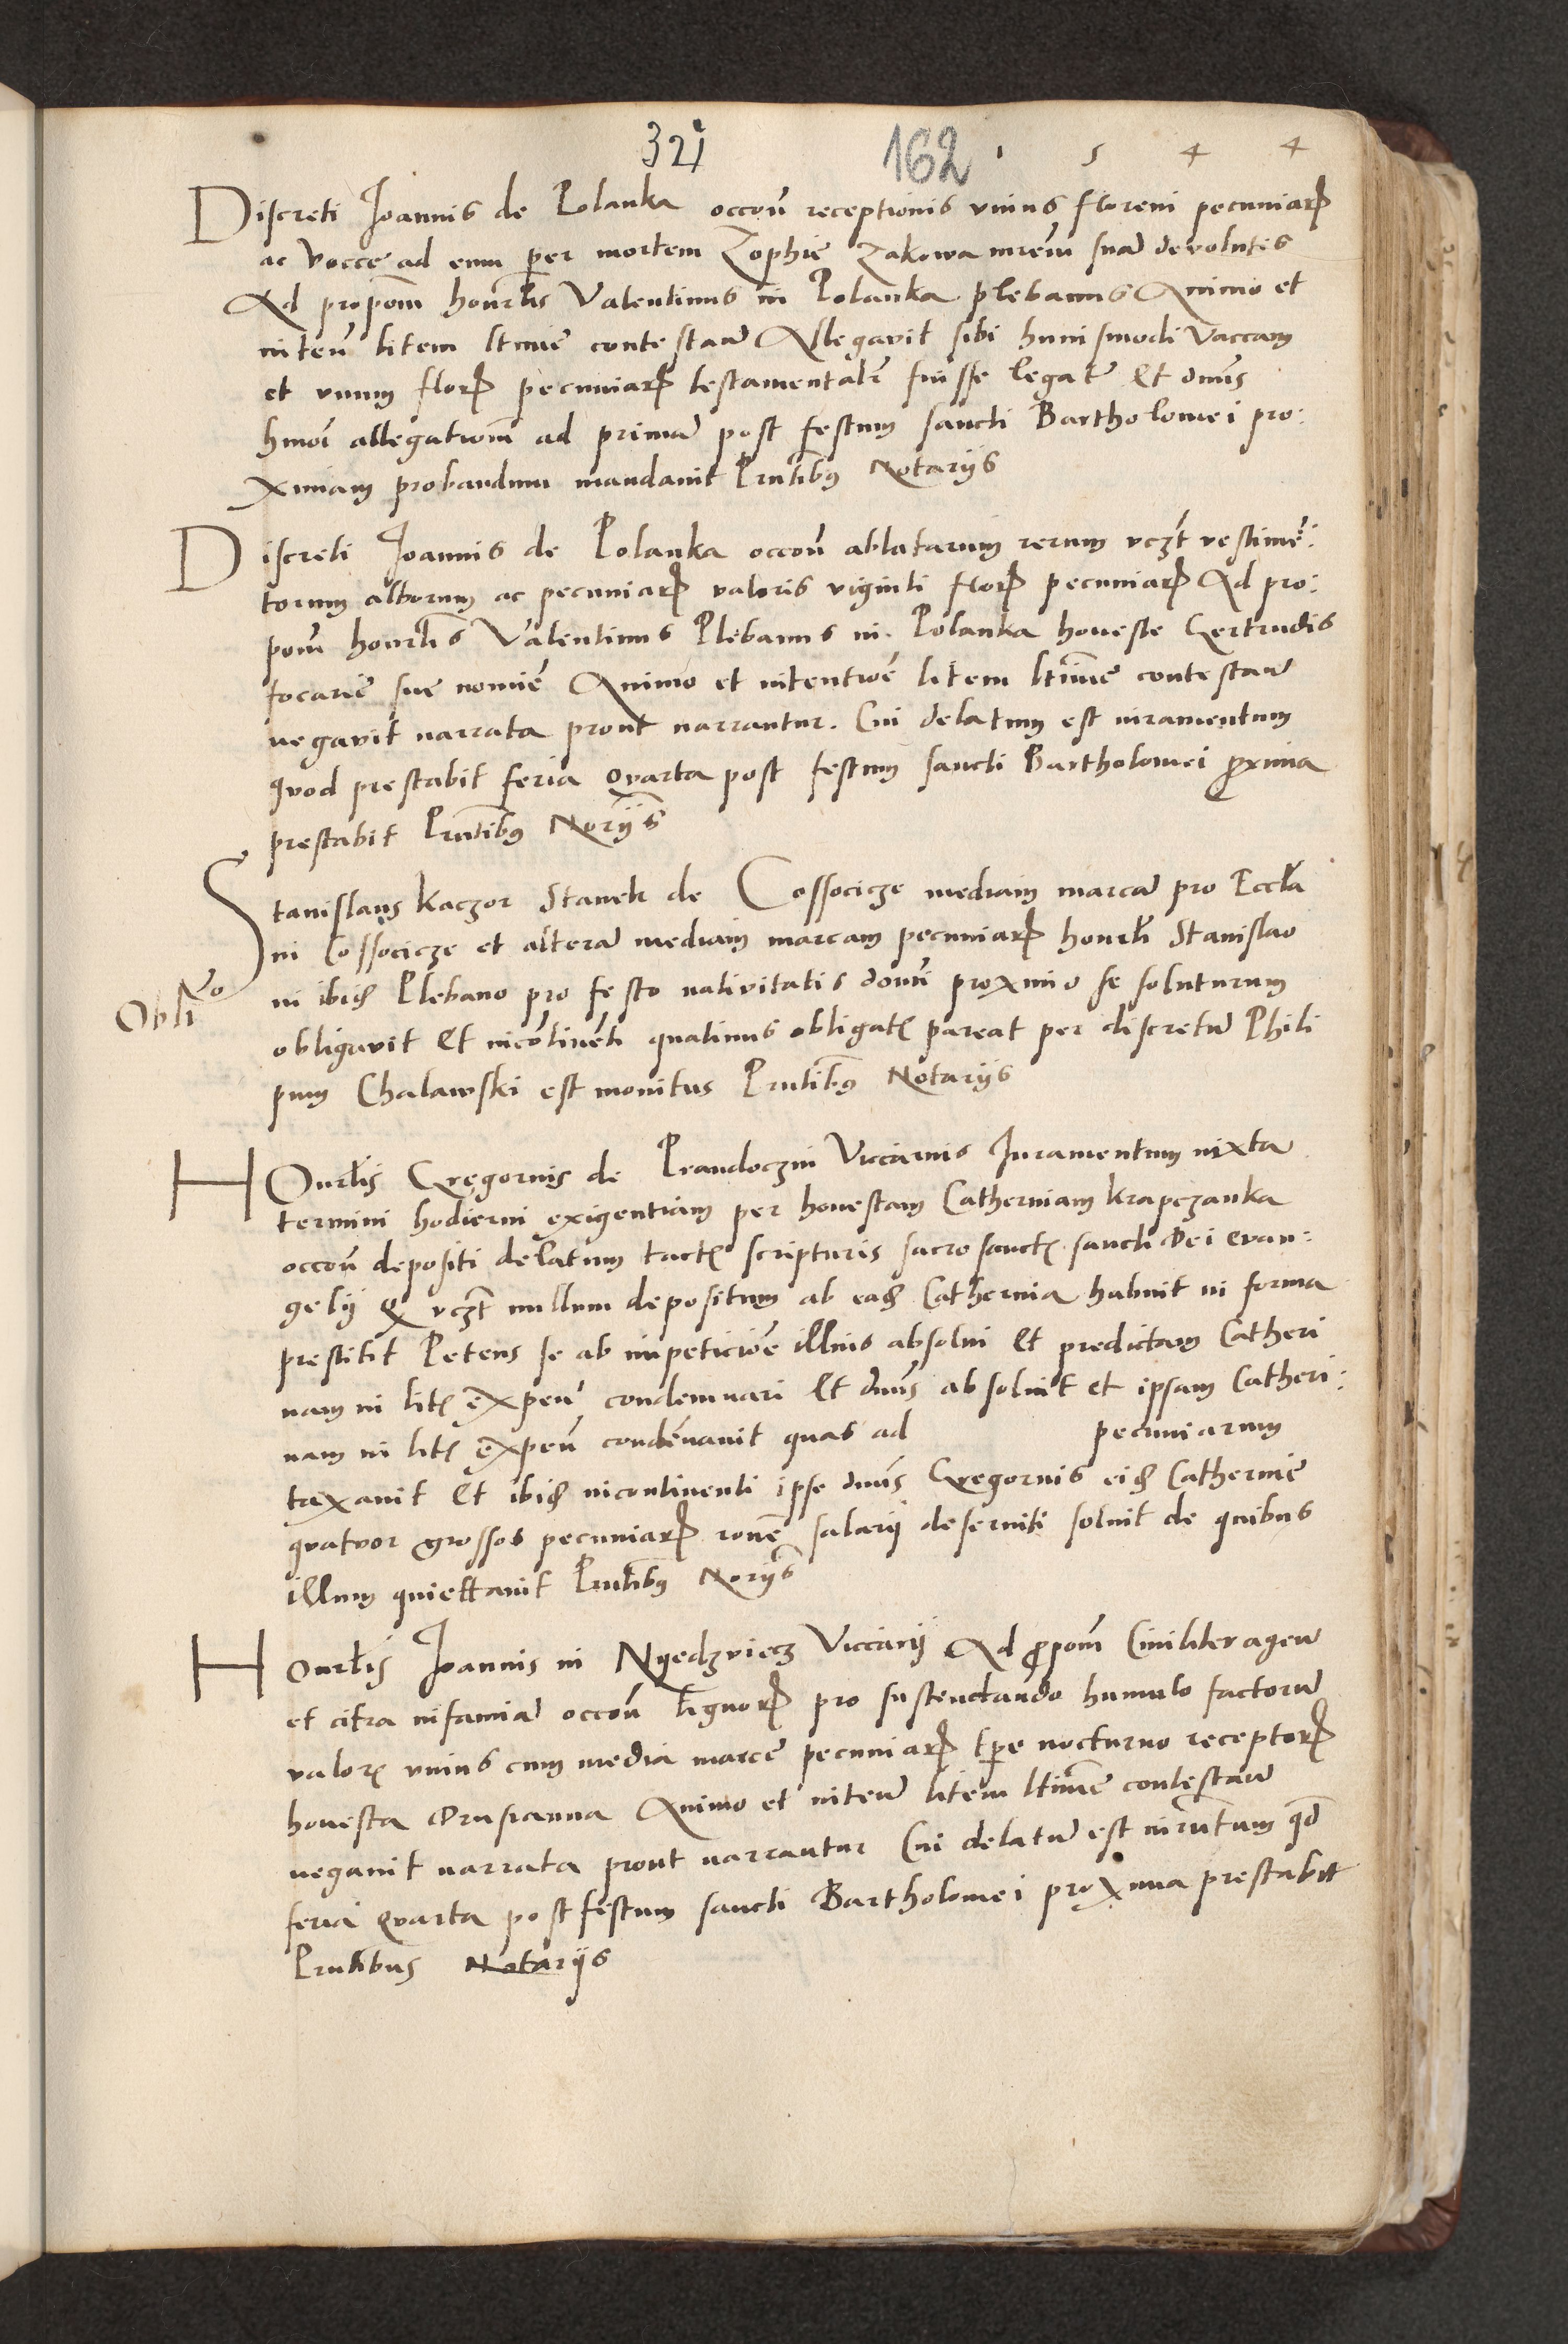 321 162 1 5 4 4
Discreti Joannis de Polanka occoñ receptionis vnius floreni pecuniarꝝ
ac vacce ad eum per mortem Zophie Zakowa mrem̃ suã devolutis
Ad propom̃ honrłis Valentinus in Polanka plebanus Animo et
inteñ litem ltime contestãr Allegavit sibi huiusmodi vaccam
et vnum florꝝ pecuniarꝝ testamentalr̃ fuisse legatũ Et dnus̃
hmoĩ allegationẽ ad primã post festum sancti Bartholomei pro:
ximam probandum mandavit Pruntibꝰ Notariis
Discreti Joannis de Polanka occoñ ablatarum rerum vczt̃ vestimẽ:
torum alborum ac pecuniarꝝ valoris viginti florꝝ pecuniarꝝ Ad pro:
pom̃ honrłis Valentinus Plebanus in Polanka honeste Gertrudis
focarie sue nomiẽ Animo et intentioẽ litem ltime contestãr
negavit narrata prout narrantur. Cui delatum est iuramentum
quod prestabit feria qvarta post festum sancti Bartholomei proxima
prestabit Pruntibꝰ Noriis̃
Stanislaus Kaczor Stanek de Cossocicze mediam marcã pro Eccłia
in Cossocicze et alterã mediam marcam pecuniarꝝ honrłi Stanislao
Obli^no
in ibiđ Plebano pro festo nativitatis domĩ proximo se soluturum
obligavit Et incõtinẽti quatinus obligatɛ pareat per discretũ Phili
pum Chalawski est monitus Pruntibꝰ Notariis
Honrłis Gregorius de Prandoczin Viccarius Juramentum iuxta
termini hodierni exigentiam per honestam Catherinam Krapczanka
occoñ depositi delatum tactɛ scripturis sacrosanctɛ sancti Dei evan:
gelij Q vczt̃ nullum depositum ab eađ Catherina habuit in forma
prestitit Petens se ab impeticioẽ illius absolvi Et predictam Catheri
nam in litɛ expeñ condemnari Et dnus̃ absoluit et ipsam Catheri:
nam in litɛ expeñ condẽnavit quas ad pecuniarum
taxavit Et ibiđ incontinenti ipse dnus̃ Gregorius eiđ Catherine
qvatvor grossos pecuniarꝝ ronẽ salarij deserviti soluit de quibus
illum quiettavit Pruntibꝰ Noriis̃
Honrłis Joannis in Nyedzviecz Viccarij Ad propom̃ Civiliter ageñ
et citra infamiã occoñ lignorꝝ pro sustentando humulo factorũ
valorɛ vnius cum media marce pecuniarꝝ tpe nocturno receptorꝝ
honesta Orusianna Animo et inteñ litem ltime contestãr
negavit narrata prout narrantur Cui delatũ est iurñtum qđ
feria qvarta post festum sancti Bartholomei proxima prestabit
Pruntibus Notariis